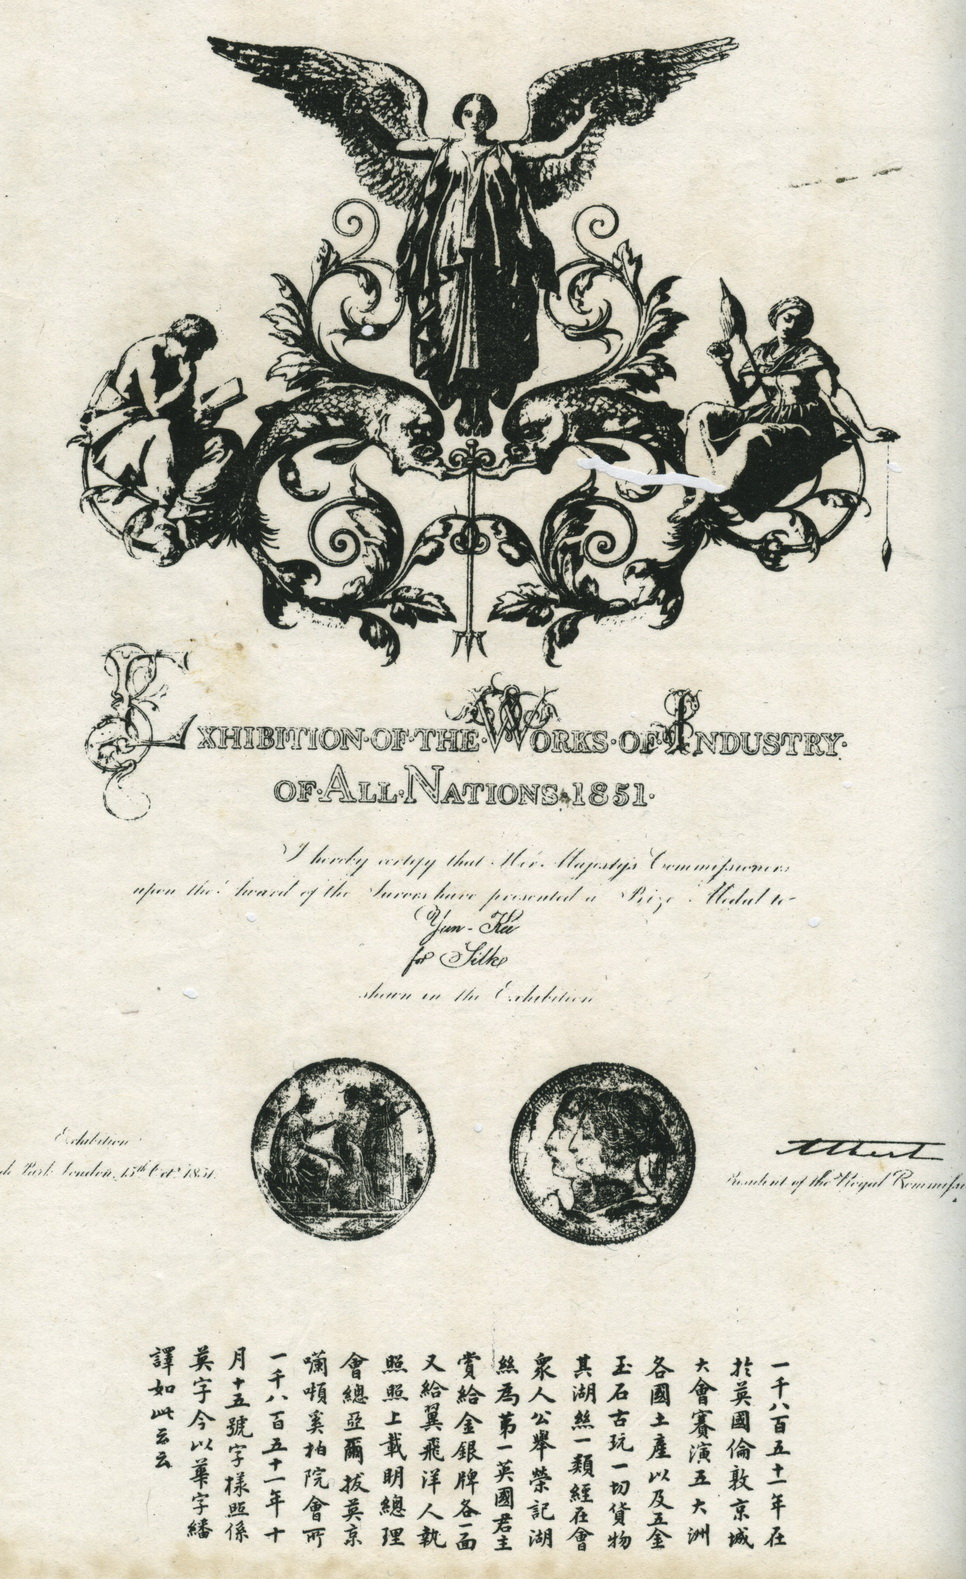 EXHIBITION·OF·THE·WORKS·OF·INDUSTRY·
OF·ALL·NATIONS·1851·
I hereby certify that Her Majesty's Commissioners
upon the Award of the Jurors have presented a Prize Medal to
Yun-Kee
for Silk
shewn in the Exhibition
Exhibition
Park London, 15th Octr. 1851.
Albert
President of the Royal
一千八百五十一年在
於英國倫敦京城
大會賽演五大洲
各國土產以及五金
玉石古玩一切貨物
其湖絲一類經在會
衆人公舉榮記湖
絲為第一英國君主
賞給金銀牌各一面
又給翼飛洋人執
照照上載明總理
會總亞爾拔英京
囒㗶奚柏院會所
一千八百五十一年十
月十五號字樣照係
英字今以華字繙
譯如此云云